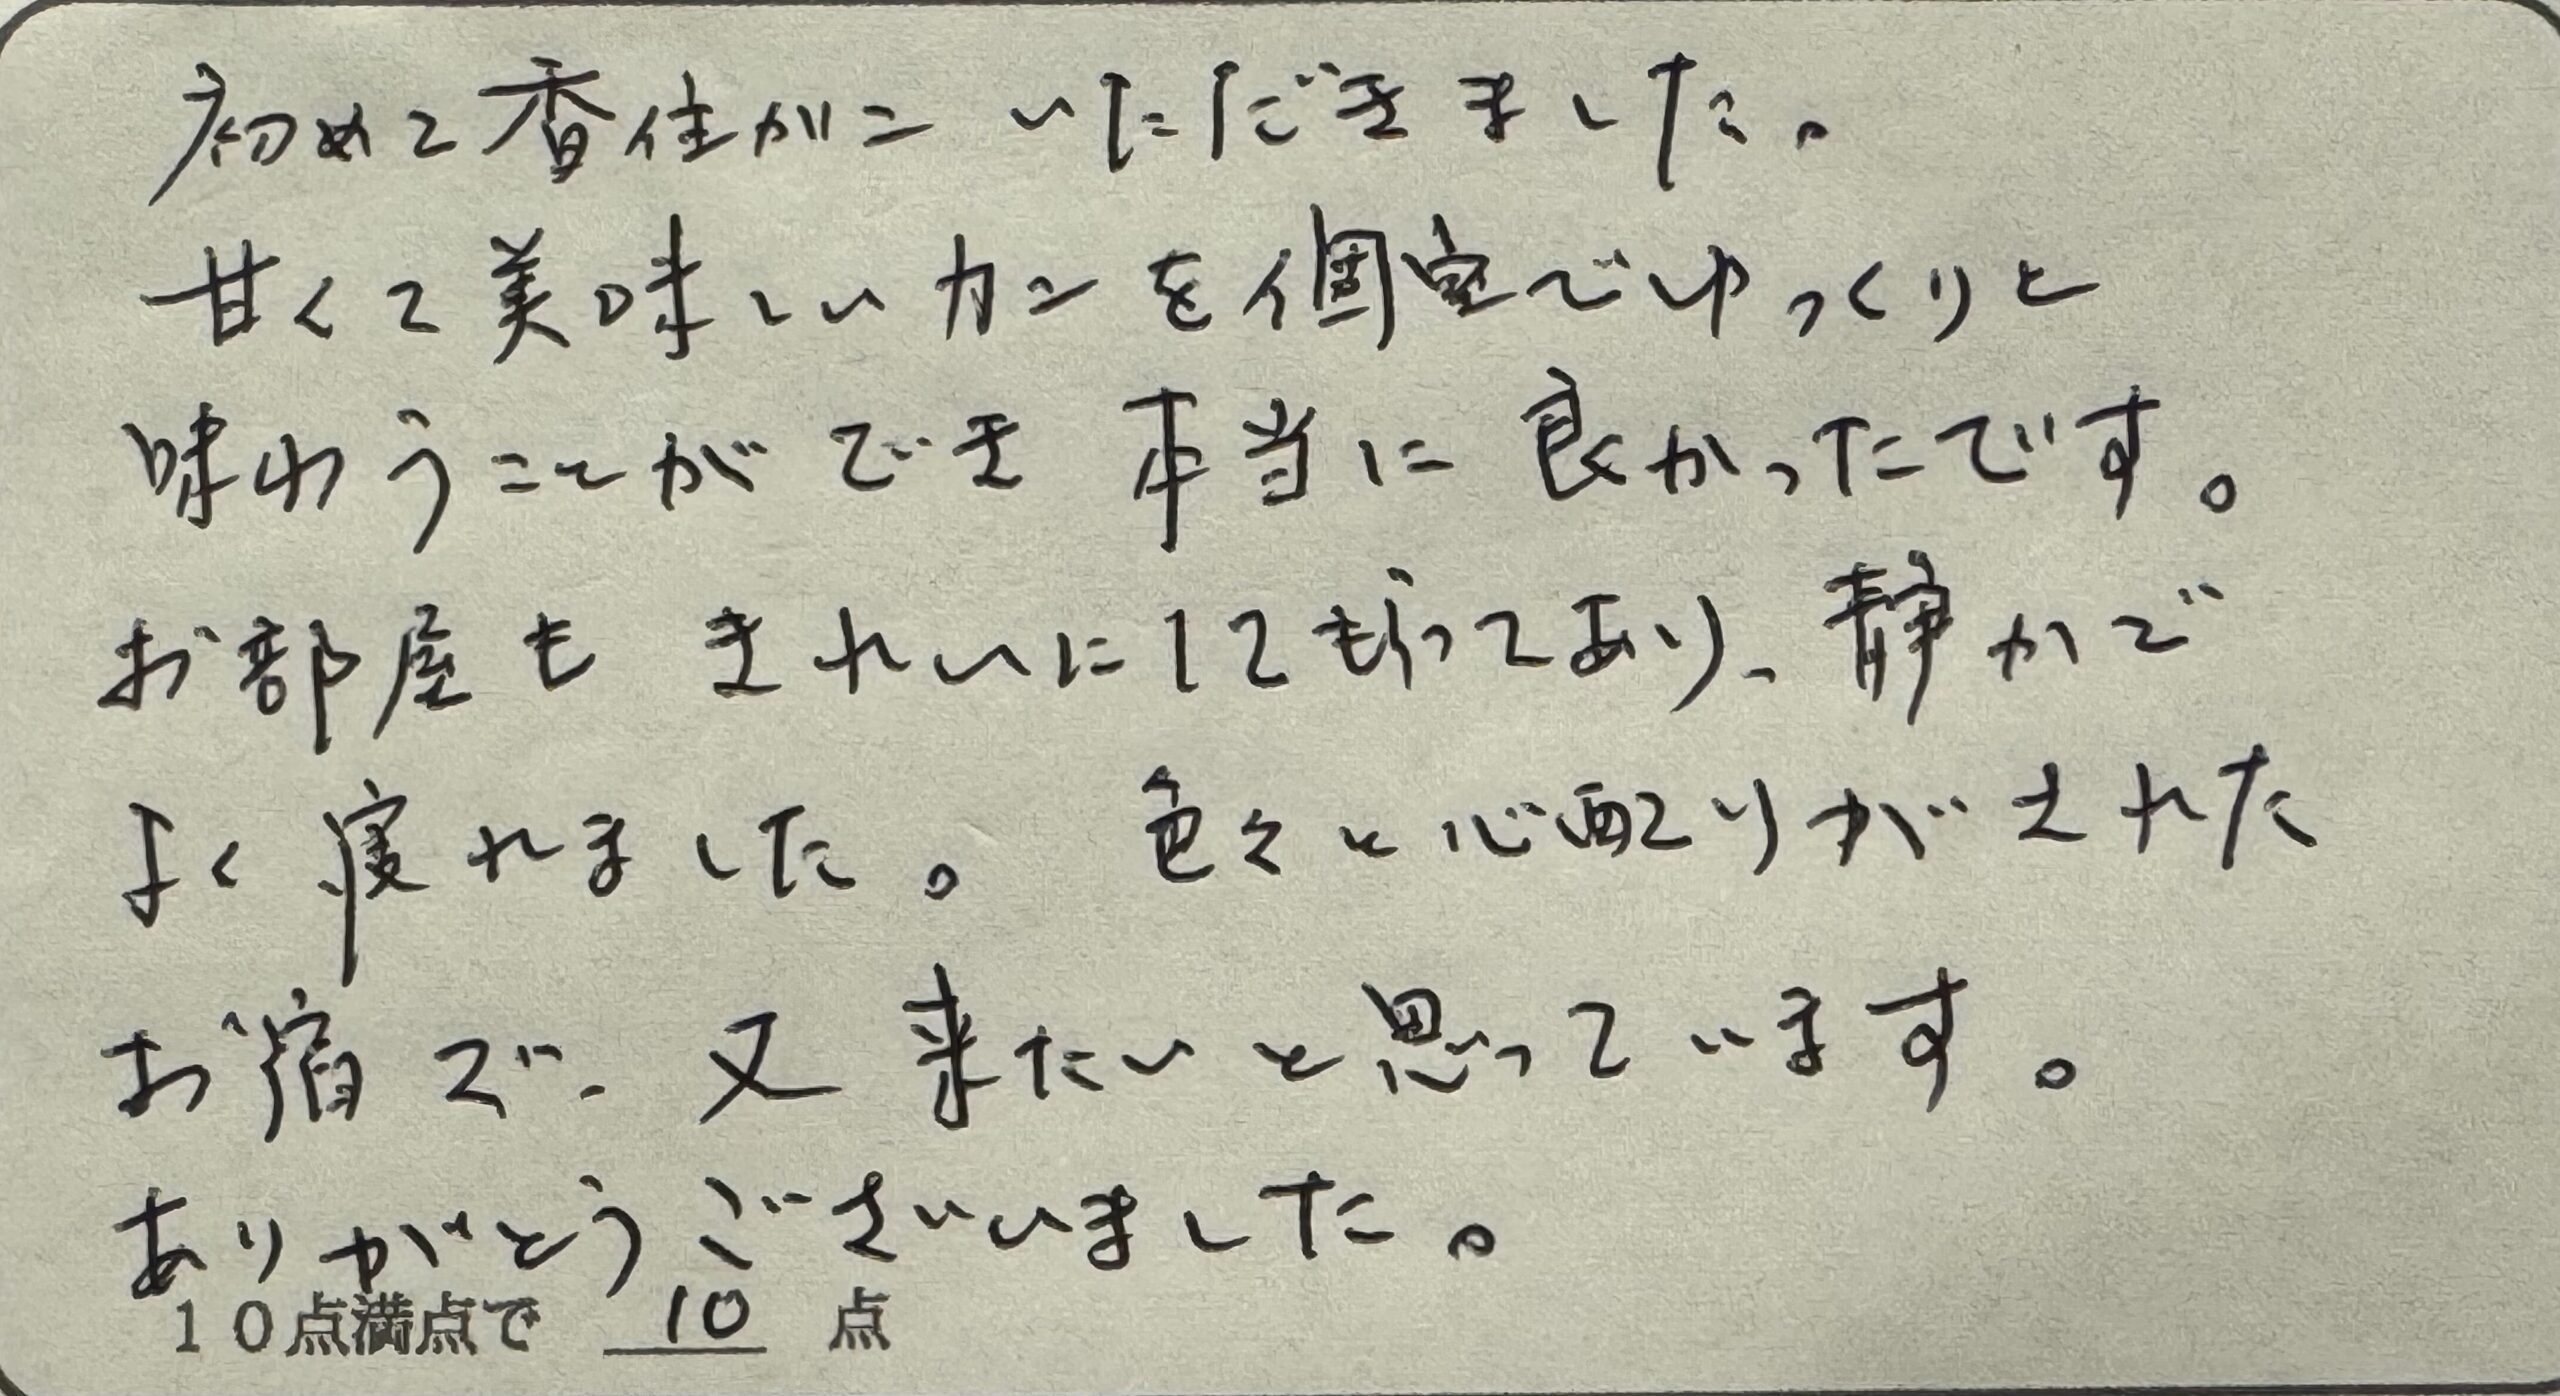 初めて香住ガニいただきました。
甘くて美味しいカニを個室でゆっくりと
味わうことができ本当に良かったです。
お部屋もきれいにしてもらってあり、静かで
よく寝れました。色々と心配りがされた
お宿で、又来たいと思っています。
ありがとうございました。
10点満点で 10 点